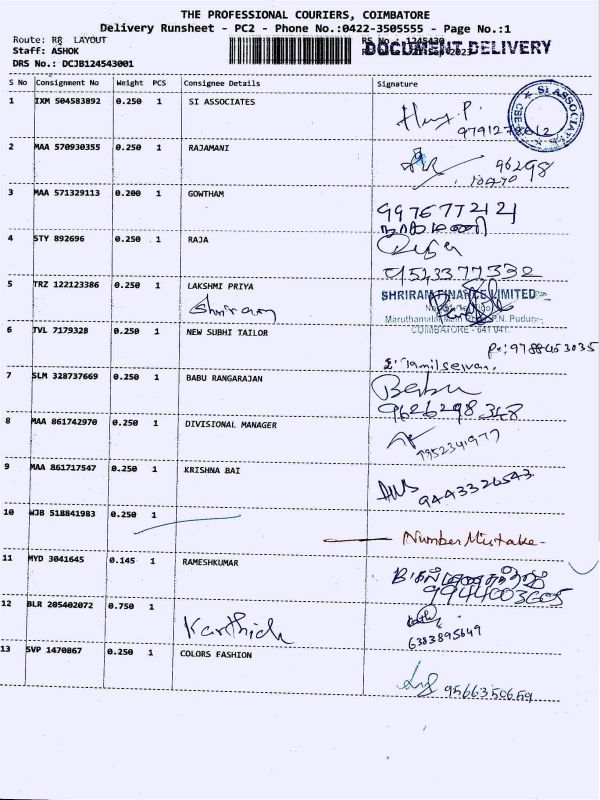 THE PROFESSIONAL COURIERS, COIMBATORE
Delivery Runsheet - PC2 - Phone No.:0422-3505555 - Page No.:1
Route: RS LAYOUT
DOCUMENT DELIVERY
Staff: ASHOK
DRS No.: DCJB124543001
S No Consignment No Weight PCS Consignee Details Signature
1 IXM 504583892 0.250 1 SI ASSOCIATES
SI ASSOCIATES
2 MAA 570930355 0.250 1 RAJAMANI
96298
3 MAA 571329113 0.200 1 GOWTHAM
9976772121
4 STY 892696 0.250 1 RAJA
9513377332
5 TRZ 122123386 0.250 1 LAKSHMI PRIYA
SHRIRAM FINANCE LIMITED
Shriram
COIMBATORE - 641 041.
6 TVL 7179328 0.250 1 NEW SUBHI TAILOR
Pe: 9788453035
7 SLM 328737669 0.250 1 BABU RANGARAJAN
Babu
9626298348
8 MAA 861742970 0.250 1 DIVISIONAL MANAGER
7952341977
9 MAA 861717547 0.250 1 KRISHNA BAI
9443326543
10 WJB 518841983 0.250 1
Number Mistake-
11 MYD 3041645 0.145 1 RAMESHKUMAR
9944003605
12 BLR 205402072 0.750 1
Karthick
6383895649
13 SVP 1470867 0.250 1 COLORS FASHION
9566350659